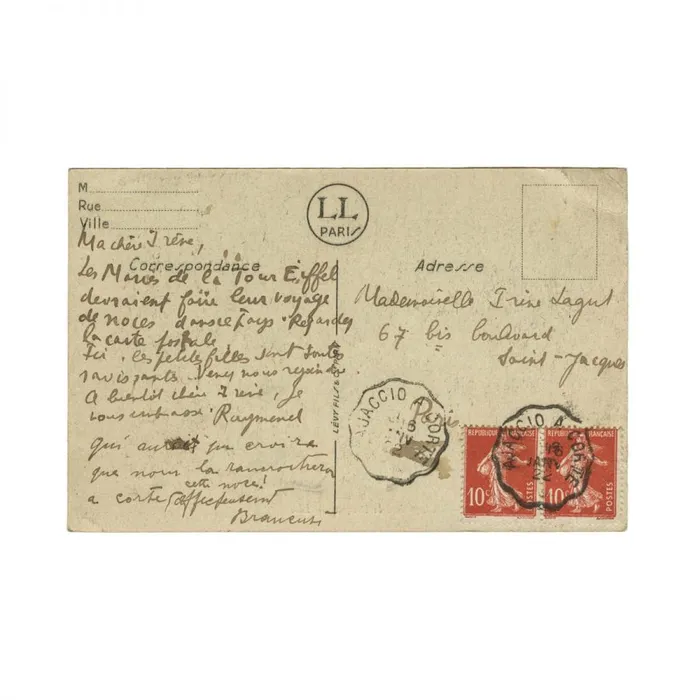 M
Rue
Ville
LL
PARIS
Correspondance
Adresse
Ma chère Irène,
Les Mariés de la Tour Eiffel
devraient faire leur voyage
de noces dans ce Pays. Regardez
la carte postale.
Ici, les petites filles sont toutes
ravissantes. Venez nous rejoindre
A bientôt chère Irène, je
vous embrasse. Raymond
qui aurait pu croire
que nous la rencontrerions
cette noce!
a corte affectueusement
Brancusi
LÉVY FILS & Cie PARIS
Mademoiselle Irène Lagut
67 bis boulvard
Saint-Jacques
Paris
AJACCIO A CORTE
RÉPUBLIQUE FRANÇAISE
10c
POSTES
AJACCIO A CORTE
18
JANV
22
RÉPUBLIQUE FRANÇAISE
10c
POSTES